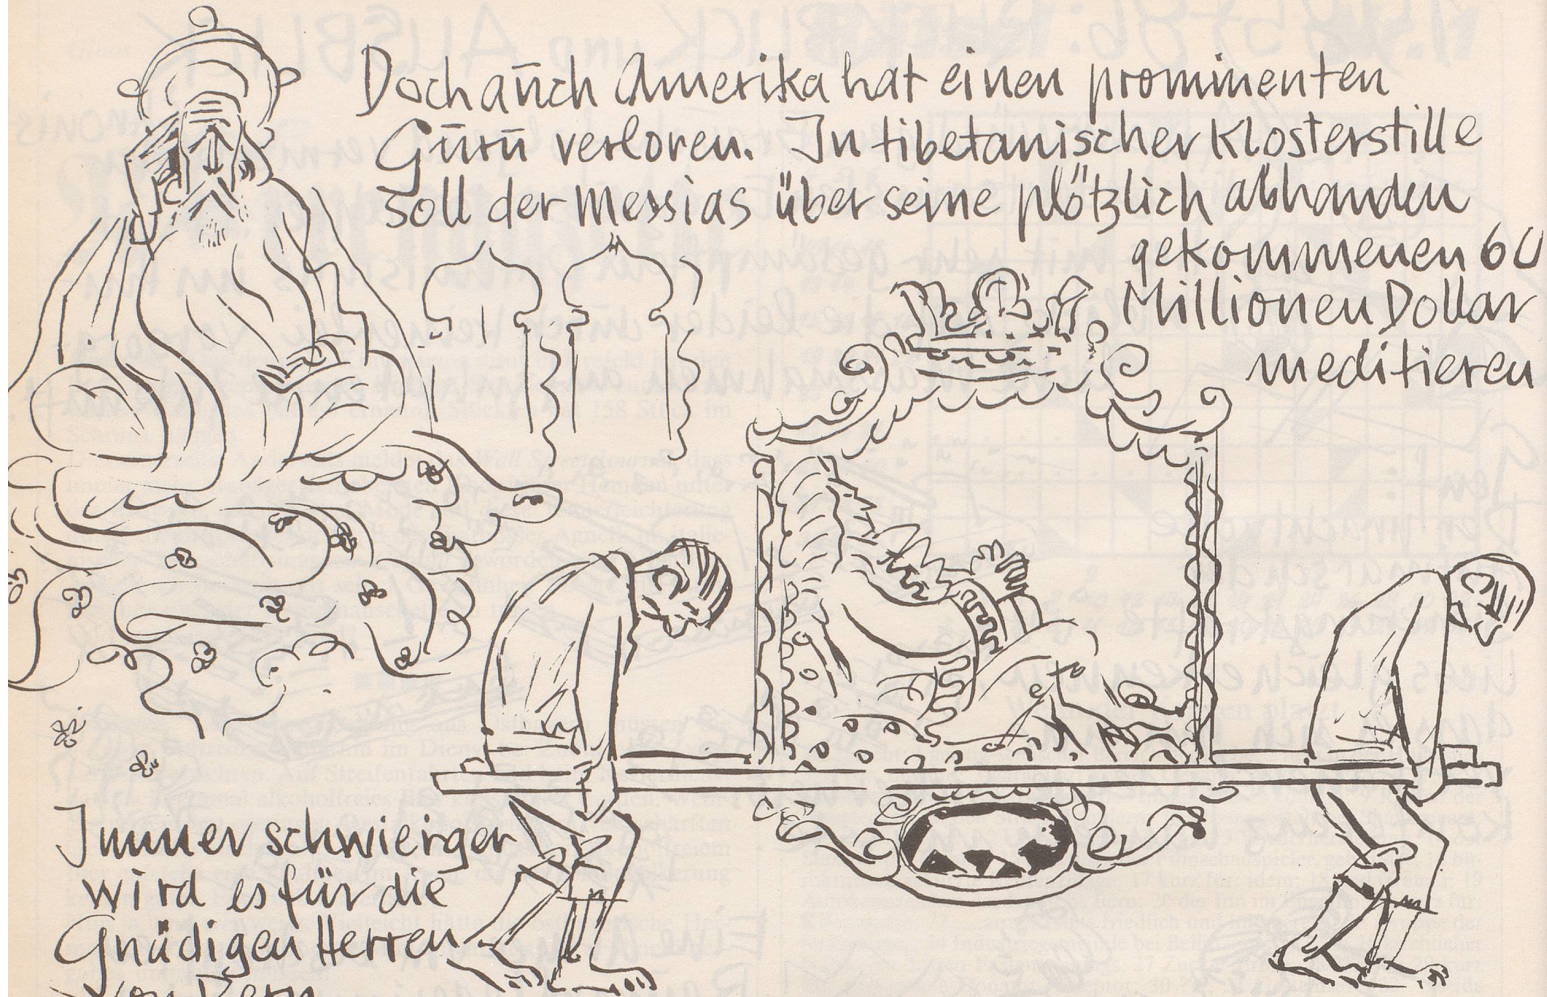 Doch auch Amerika hat einen prominenten
Guru verloren. In tibetanischer Klosterstille
soll der Messias über seine plötzlich abhanden
gekommenen 60
Millionen Dollar
meditieren
Immer schwieriger
wird es für die
Gnädigen Herren
von Bern